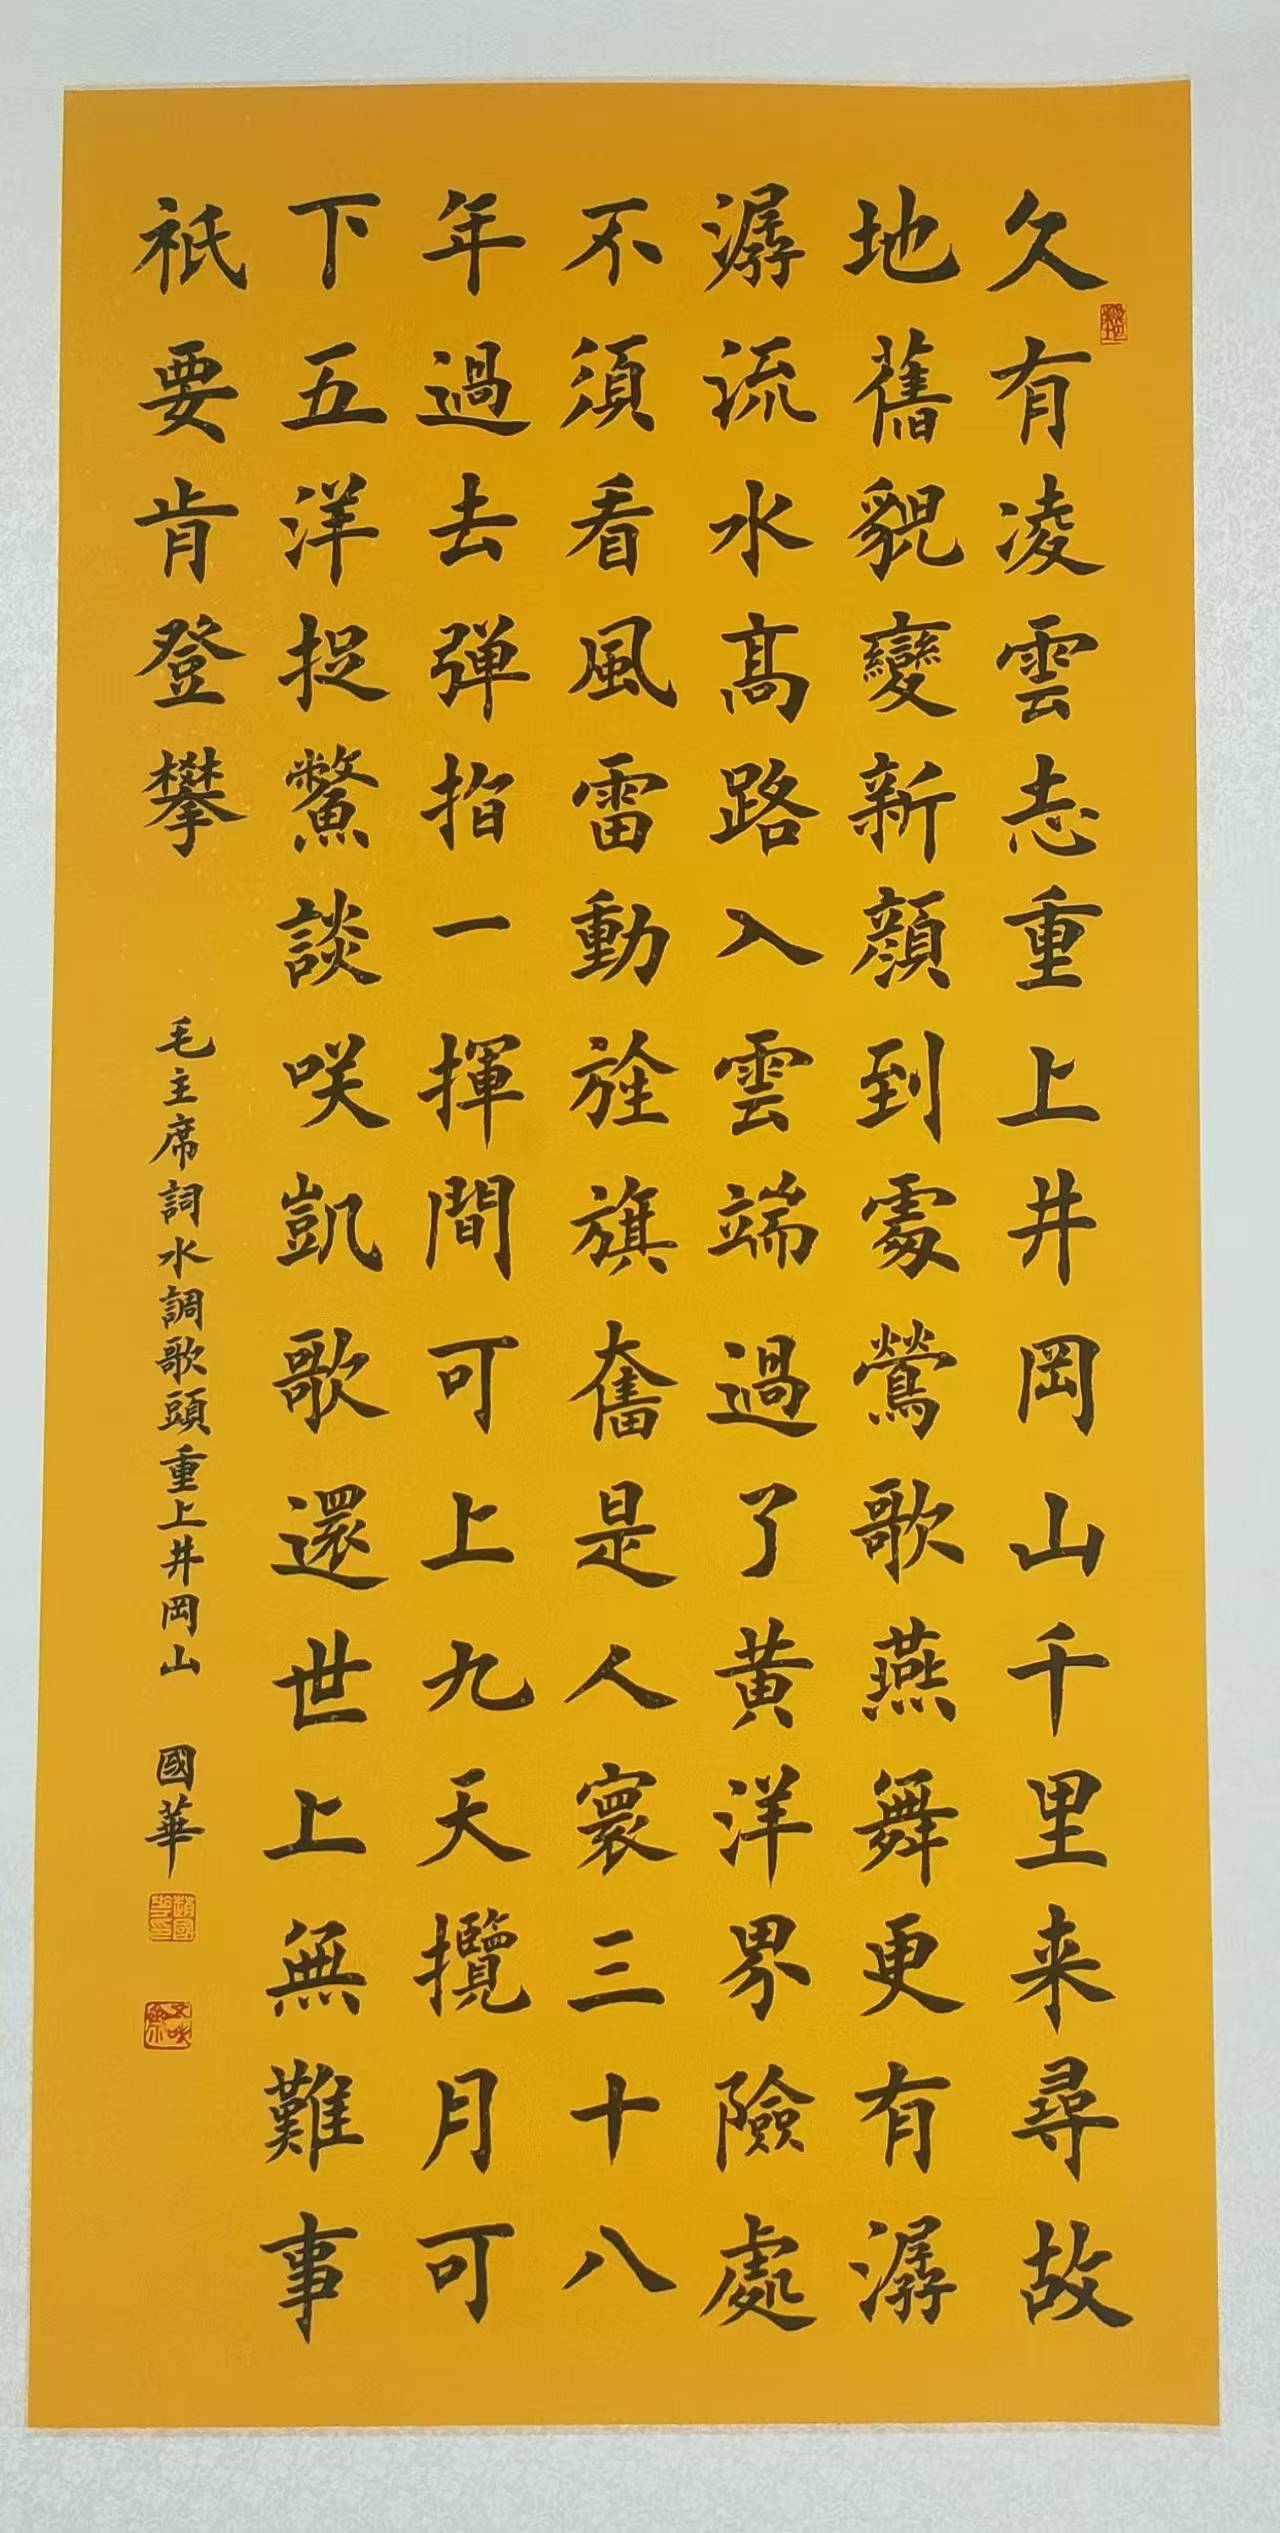 久有凌雲志重上井岡山千里来尋故
地舊貌變新顔到處鶯歌燕舞更有潺
潺流水高路入雲端過了黄洋界險處
不須看風雷動旌旗奮是人寰三十八
年過去弹指一揮間可上九天攬月可
下五洋捉鱉談咲凱歌還世上無難事
祇要肯登攀
毛主席詞水調歌頭重上井岡山
國華